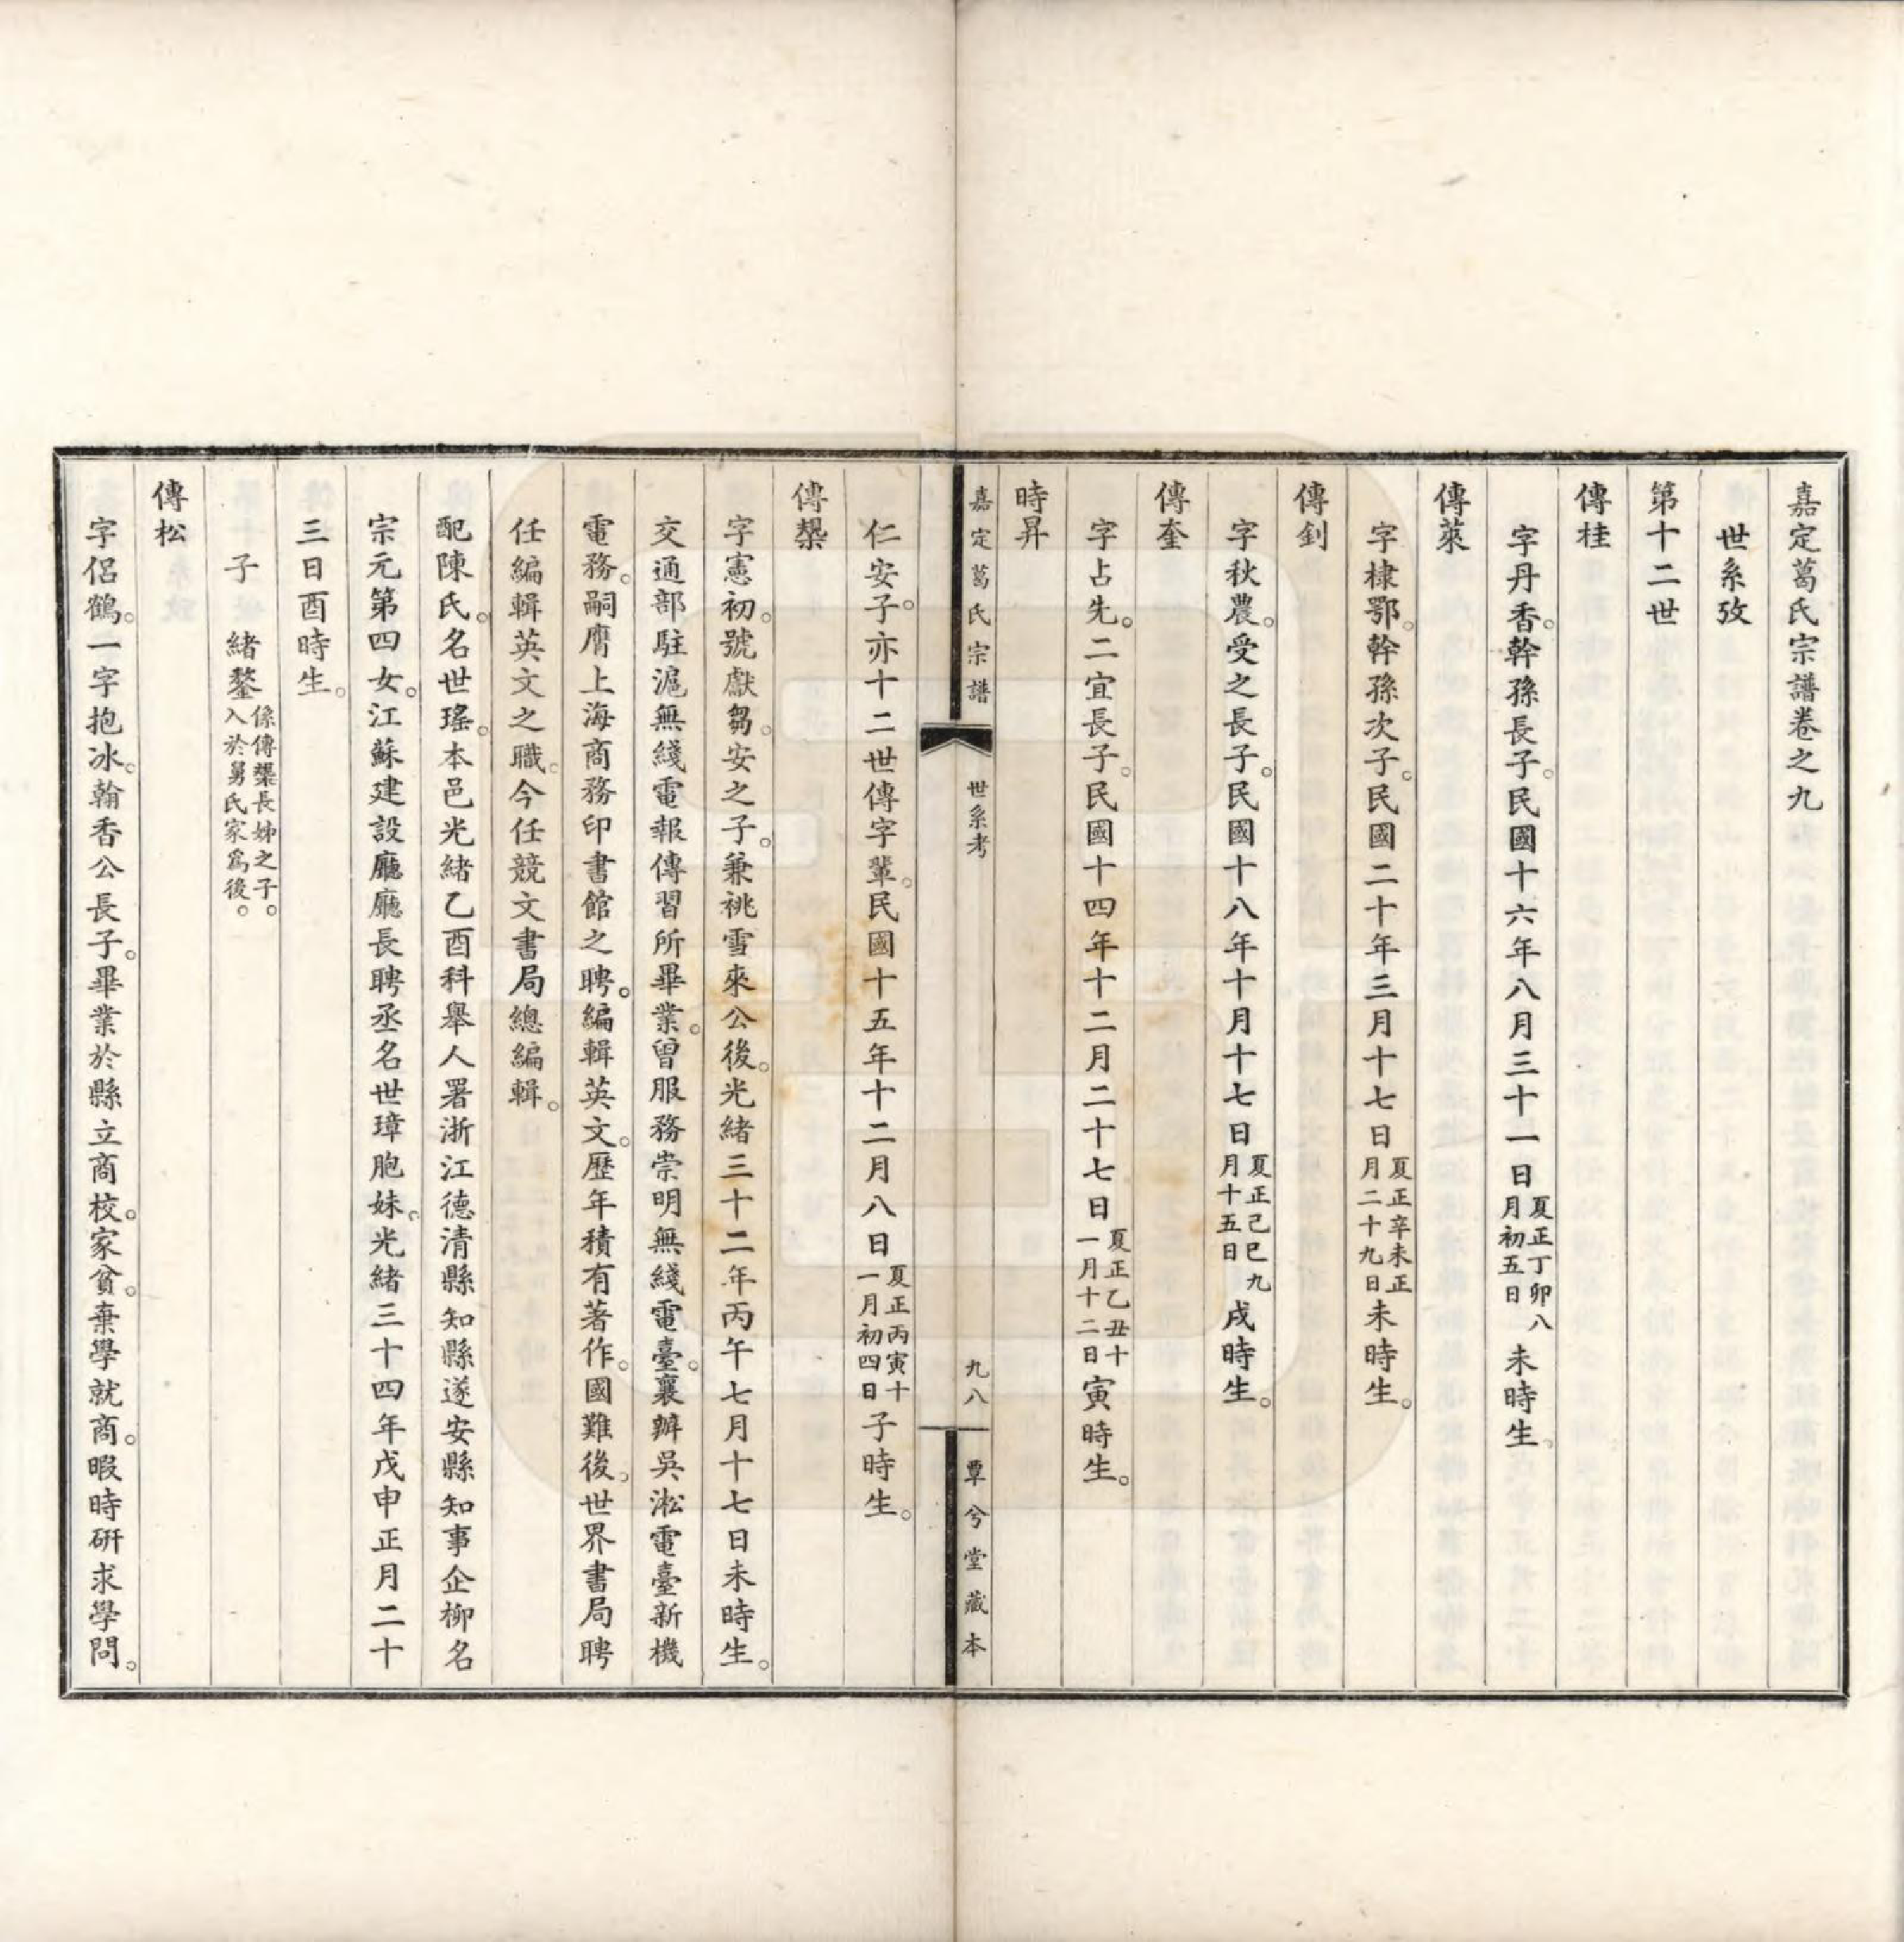 嘉定葛氏宗譜卷之九
世系攷
第十二世
傳桂
字丹香。幹孫長子。民國十六年八月三十一日夏正丁卯八月初五日未時生。
傳萊
字棣鄂。幹孫次子。民國二十年三月十七日夏正辛未正月二十九日未時生。
傳釗
字秋農。受之長子。民國十八年十月十七日夏正己巳九月十五日戌時生。
傳奎
字占先。二宜長子。民國十四年十二月二十七日夏正乙丑十一月十二日寅時生。
時昇
嘉定葛氏宗譜 世系考 九八 覃兮堂藏本
仁安子。亦十二世傳字輩。民國十五年十二月八日夏正丙寅十一月初四日子時生。
傳槼
字憲初。號獻芻。安之子。兼祧雪來公後。光緒三十二年丙午七月十七日未時生。
交通部駐滬無綫電報傳習所畢業。曾服務崇明無綫電臺。襄辦吳淞電臺新機
電務。嗣膺上海商務印書館之聘。編輯英文。歷年積有著作。國難後。世界書局聘
任編輯英文之職。今任競文書局總編輯。
配陳氏。名世瑤。本邑光緒乙酉科舉人署浙江德清縣知縣遂安縣知事企柳名
宗元第四女。江蘇建設廳廳長聘丞名世璋胞妹。光緒三十四年戊申正月二十
三日酉時生。
子 緒鏊係傳槼長姊之子。入於舅氏家爲後。
傳松
字侶鶴。一字抱冰。翰香公長子。畢業於縣立商校。家貧。棄學就商。暇時研求學問。